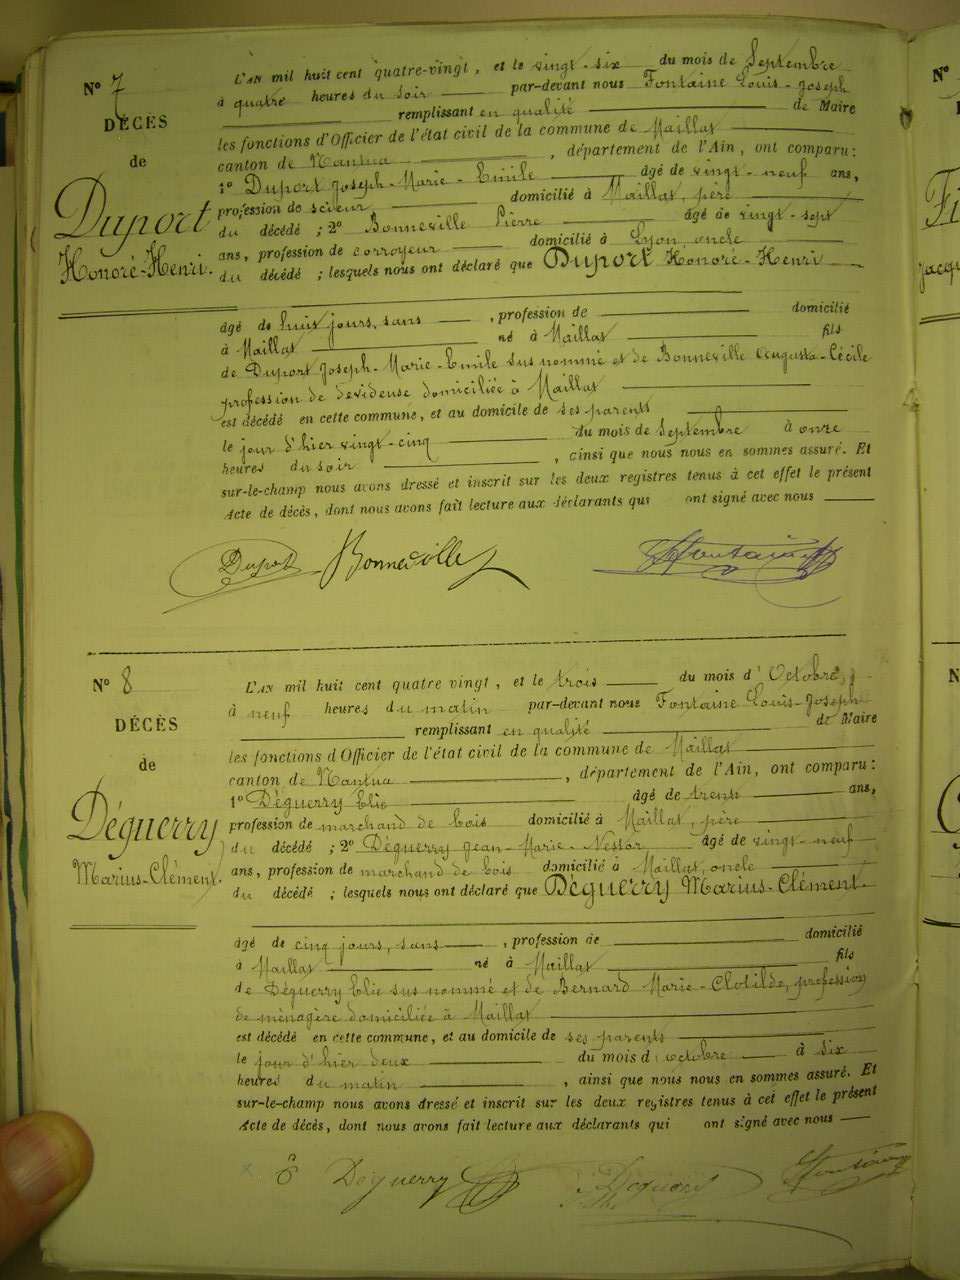 N° 7
DÉCÈS
de
Duport
Honoré-Henri.
L'AN mil huit cent quatre-vingt, et le vingt-six du mois de Septembre
à quatre heures du soir par-devant nous Fontaine Louis-Joseph
remplissant en qualité de Maire
les fonctions d'Officier de l'état civil de la commune de Maillat
canton de Nantua, département de l'Ain, ont comparu:
1° Duport Joseph-Marie-Emile âgé de vingt-neuf ans,
profession de scieur domicilié à Maillat, père
du décédé; 2° Bonneville Pierre âgé de vingt-sept
ans, profession de corroyeur domicilié à Lyon, oncle
du décédé; lesquels nous ont déclaré que Duport Honoré-Henri
âgé de huit jours, sans, profession de domicilié
à Maillat né à Maillat fils
de Duport Joseph-Marie-Emile sus nommé et de Bonneville Augusta-Cécile
profession de devideuse domiciliée à Maillat
est décédé en cette commune, et au domicile de ses parents
le jour d'hier vingt-cinq du mois de Septembre à onze
heures du soir, ainsi que nous nous en sommes assuré. Et
sur-le-champ nous avons dressé et inscrit sur les deux registres tenus à cet effet le présent
Acte de décès, dont nous avons fait lecture aux déclarants qui ont signé avec nous
Duport Bonneville Fontaine
N° 8
DÉCÈS
de
Déguerry
Marius-Clément.
L'AN mil huit cent quatre vingt, et le trois du mois d'Octobre,
à neuf heures du matin par-devant nous Fontaine Louis-Joseph
remplissant en qualité de Maire
les fonctions d'Officier de l'état civil de la commune de Maillat
canton de Nantua, département de l'Ain, ont comparu:
1° Déguerry Elie âgé de trente ans,
profession de marchand de bois domicilié à Maillat, père
du décédé; 2° Déguerry Jean-Marie-Nestor âgé de vingt-neuf
ans, profession de marchand de bois domicilié à Maillat, oncle
du décédé; lesquels nous ont déclaré que Déguerry Marius-Clément.
âgé de cinq jours, sans, profession de domicilié
à Maillat né à Maillat fils
de Déguerry Elie sus nommé et de Bernard Marie-Clotilde, profession
de ménagère domiciliée à Maillat
est décédé en cette commune, et au domicile de ses parents
le jour d'hier deux du mois d'octobre à six
heures du matin, ainsi que nous nous en sommes assuré. Et
sur-le-champ nous avons dressé et inscrit sur les deux registres tenus à cet effet le présent
Acte de décès, dont nous avons fait lecture aux déclarants qui ont signé avec nous
Déguerry Déguerry Fontaine